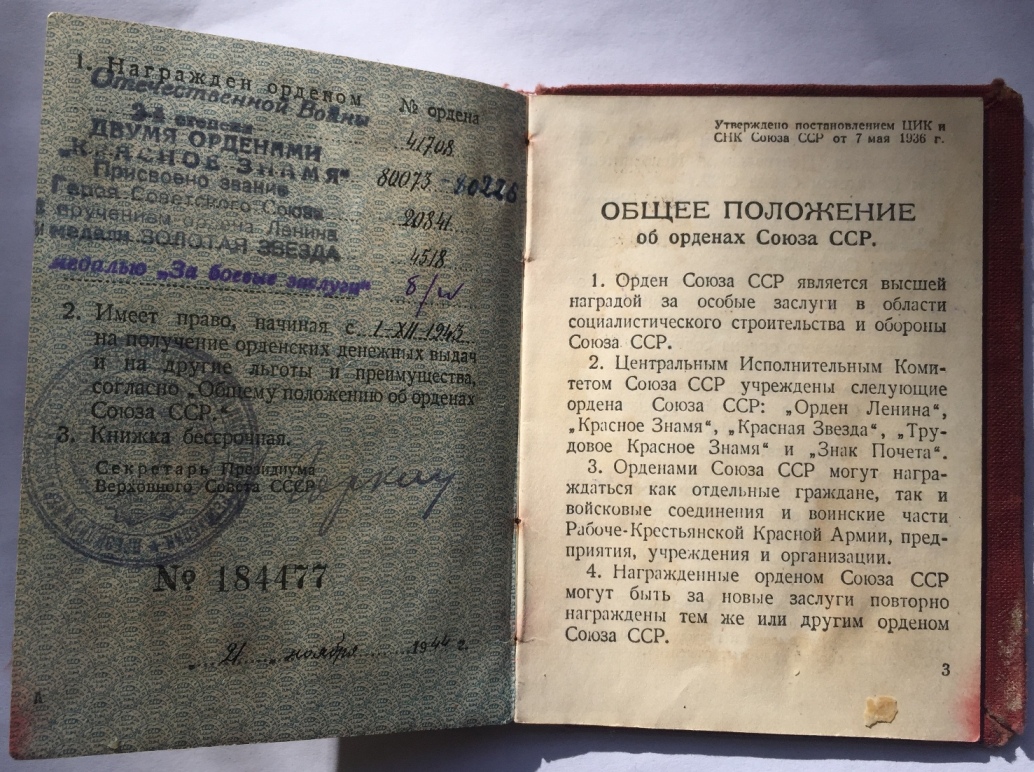 1. Награжден орденом
№ ордена
Отечественной Войны
2-й степени
41708
ДВУМЯ ОРДЕНАМИ
„КРАСНОЕ ЗНАМЯ"
80073 - 80226
Присвоено звание
Героя Советского Союза
с вручением ордена Ленина
20841
и медали ЗОЛОТАЯ ЗВЕЗДА
4518
медалью „За боевые заслуги"
б/н
2. Имеет право, начиная с 1-XII-1943
на получение орденских денежных выдач
и на другие льготы и преимущества,
согласно „Общему положению об орденах
Союза ССР."
3. Книжка бессрочная.
Секретарь Президиума
Верховного Совета СССР
№ 184477
„21" ноября 1944 г.
А
Утверждено постановлением ЦИК и
СНК Союза ССР от 7 мая 1936 г.
ОБЩЕЕ ПОЛОЖЕНИЕ
об орденах Союза ССР.
1. Орден Союза ССР является высшей
наградой за особые заслуги в области
социалистического строительства и обороны
Союза ССР.
2. Центральным Исполнительным Коми-
тетом Союза ССР учреждены следующие
ордена Союза ССР: „Орден Ленина",
„Красное Знамя", „Красная Звезда", „Тру-
довое Красное Знамя" и „Знак Почета".
3. Орденами Союза ССР могут награ-
ждаться как отдельные граждане, так и
войсковые соединения и воинские части
Рабоче-Крестьянской Красной Армии, пред-
приятия, учреждения и организации.
4. Награжденные орденом Союза ССР
могут быть за новые заслуги повторно
награждены тем же или другим орденом
Союза ССР.
3